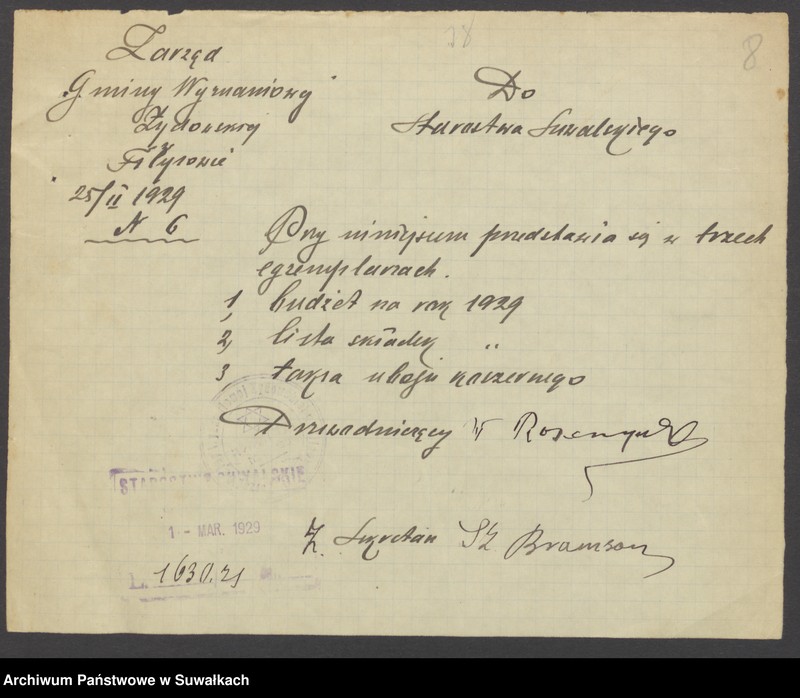 8
Zarząd
Gminy Wyznaniowej
Żydowskiej
Filipowie
25/II 1929
N 6
Do
Starostwa Suwalskiego
Przy niniejszem przedstawia się w trzech
egzemplarzach.
1, budżet na rok 1929
2, lista składek "
3 taksa uboju koszernego
Przewodniczący
STAROSTWO SUWALSKIE
1 - MAR. 1929
L. 1630.21
Z. Sekretarz Sz Bramson
Archiwum Państwowe w Suwałkach